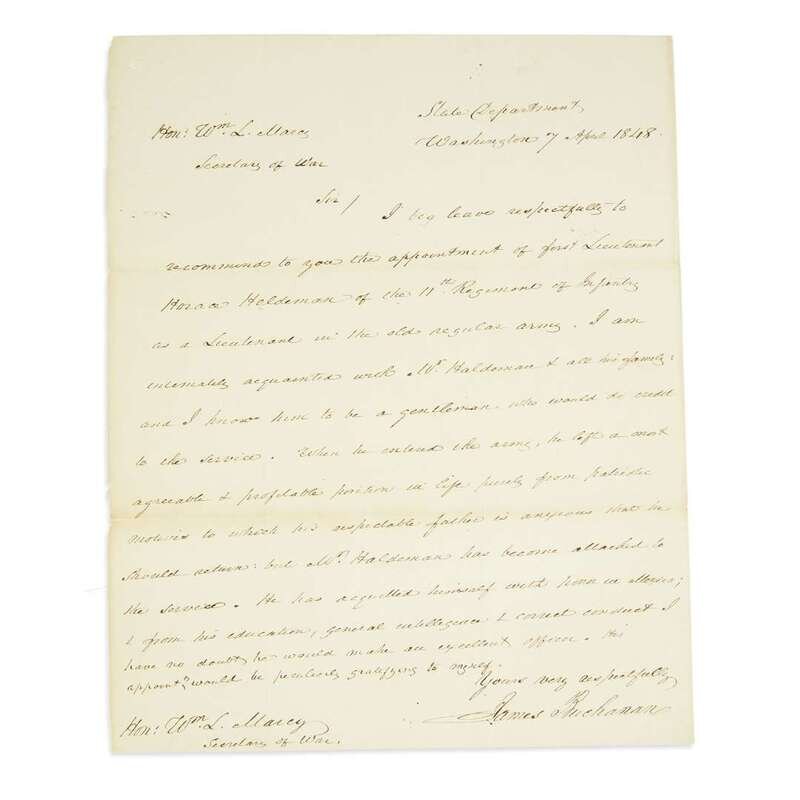 State Department
Hon: Wm L. Marcy
Washington 7 April 1848.
Secretary of War
Sir / I beg leave respectfully to
recommend to you the appointment of first Lieutenant
Horace Haldeman of the 11th Regiment of Infantry
as a Lieutenant in the old regular army. I am
intimately acquainted with Mr. Haldeman & all his family:
and I know him to be a gentleman who would do credit
to the service. When he entered the army, he left a most
agreeable & profitable position in life purely from patriotic
motives to which his respectable father is anxious that he
should return: but Mr. Haldeman has become attached to
the service. He has acquitted himself with honor in Mexico;
& from his education, general intelligence & correct conduct I
have no doubt he would make an excellent officer. His
appointt. would be peculiarly gratifying to myself.
Yours very respectfully
James Buchanan
Hon: Wm. L. Marcy
Secretary of War.